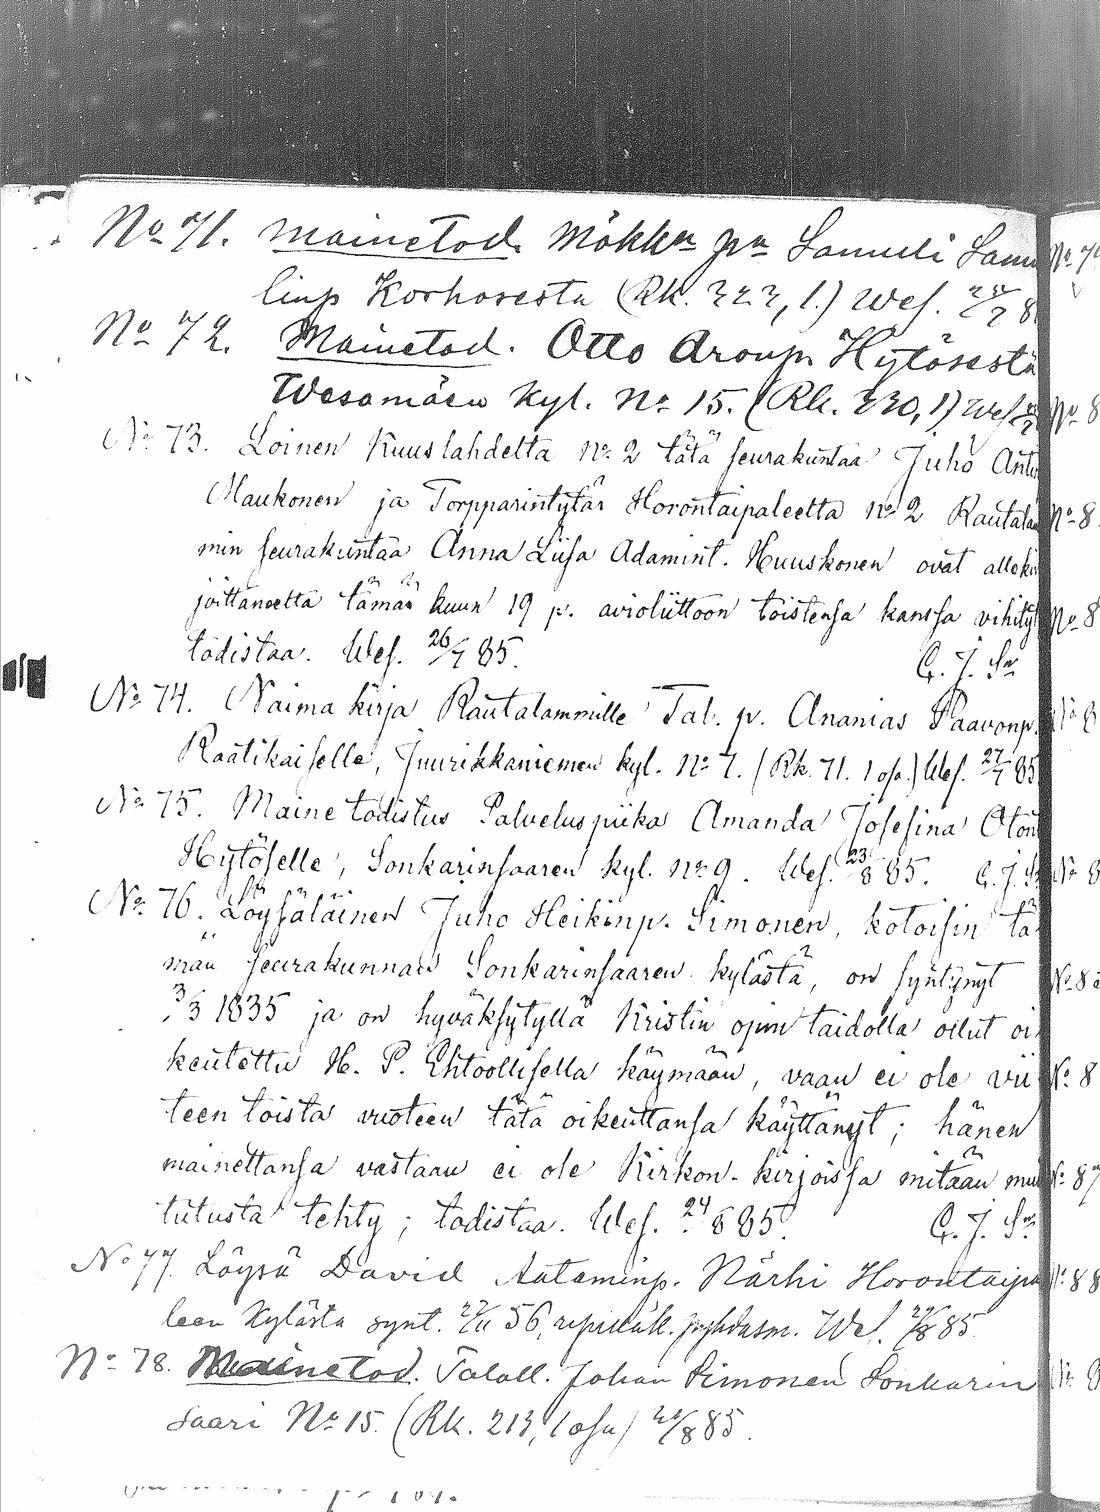 No 71. Mainetod. Mökkn pn Samuli Samu
linp Korhosesta (Rk. 323, 1.) Wes.
No 72. Mainetod. Otto Aroup. Hytösestä
Wesamäen kyl. No 15. (Rk. 330, 1) Wes.
No 73. Loinen Kuuslahdelta no 2 tätä seurakuntaa Juho Antin
Maukonen ja Torpparintytär Horontaipaleelta no 2 Rautalam
min seurakuntaa Anna Liisa Adamint. Huuskonen ovat allekir
joittaneelta tämän kuun 19 p. avioliittoon toistensa kanssa vihityt
todistaa. Wes. 26/7 85. C. J. Sn
No 74. Naima kirja Rautalammille Tal. p. Ananias Paavonp.
Raatikaiselle, Juurikkaniemen kyl. No 7. (Rk. 71. 1 os.) Wes. 27/7 85
No 75. Maine todistus Palveluspiika Amanda Josefina Oton
Hytöselle, Sonkarinsaaren kyl. no 9. Wes. 23/8 85. C. J. Sn
No 76. Löysäläinen Juho Heikinp. Simonen, kotoisin tä
män seurakunnan Sonkarinsaaren kylästä, on syntynyt
3/3 1835 ja on hyväksytyllä Kristin opin taidolla ollut oi
keutettu H. P. Ehtoollisella käymään, vaan ei ole vii
teentoista vuoteen tätä oikeuttansa käyttänyt; hänen
mainettansa vastaan ei ole Kirkon-kirjoissa mitään muis
tutusta tehty; todistaa. Wes. 24/8 85. C. J. Sn
No 77. Löysä David Aataminp. Närhi Horontaipa
leen kylästä synt. 56, Wes. 85.
No 78. Mainetod. Talall. Johan Simonen Sonkarin
saari No 15. (Rk. 213, 1 osa) 85.